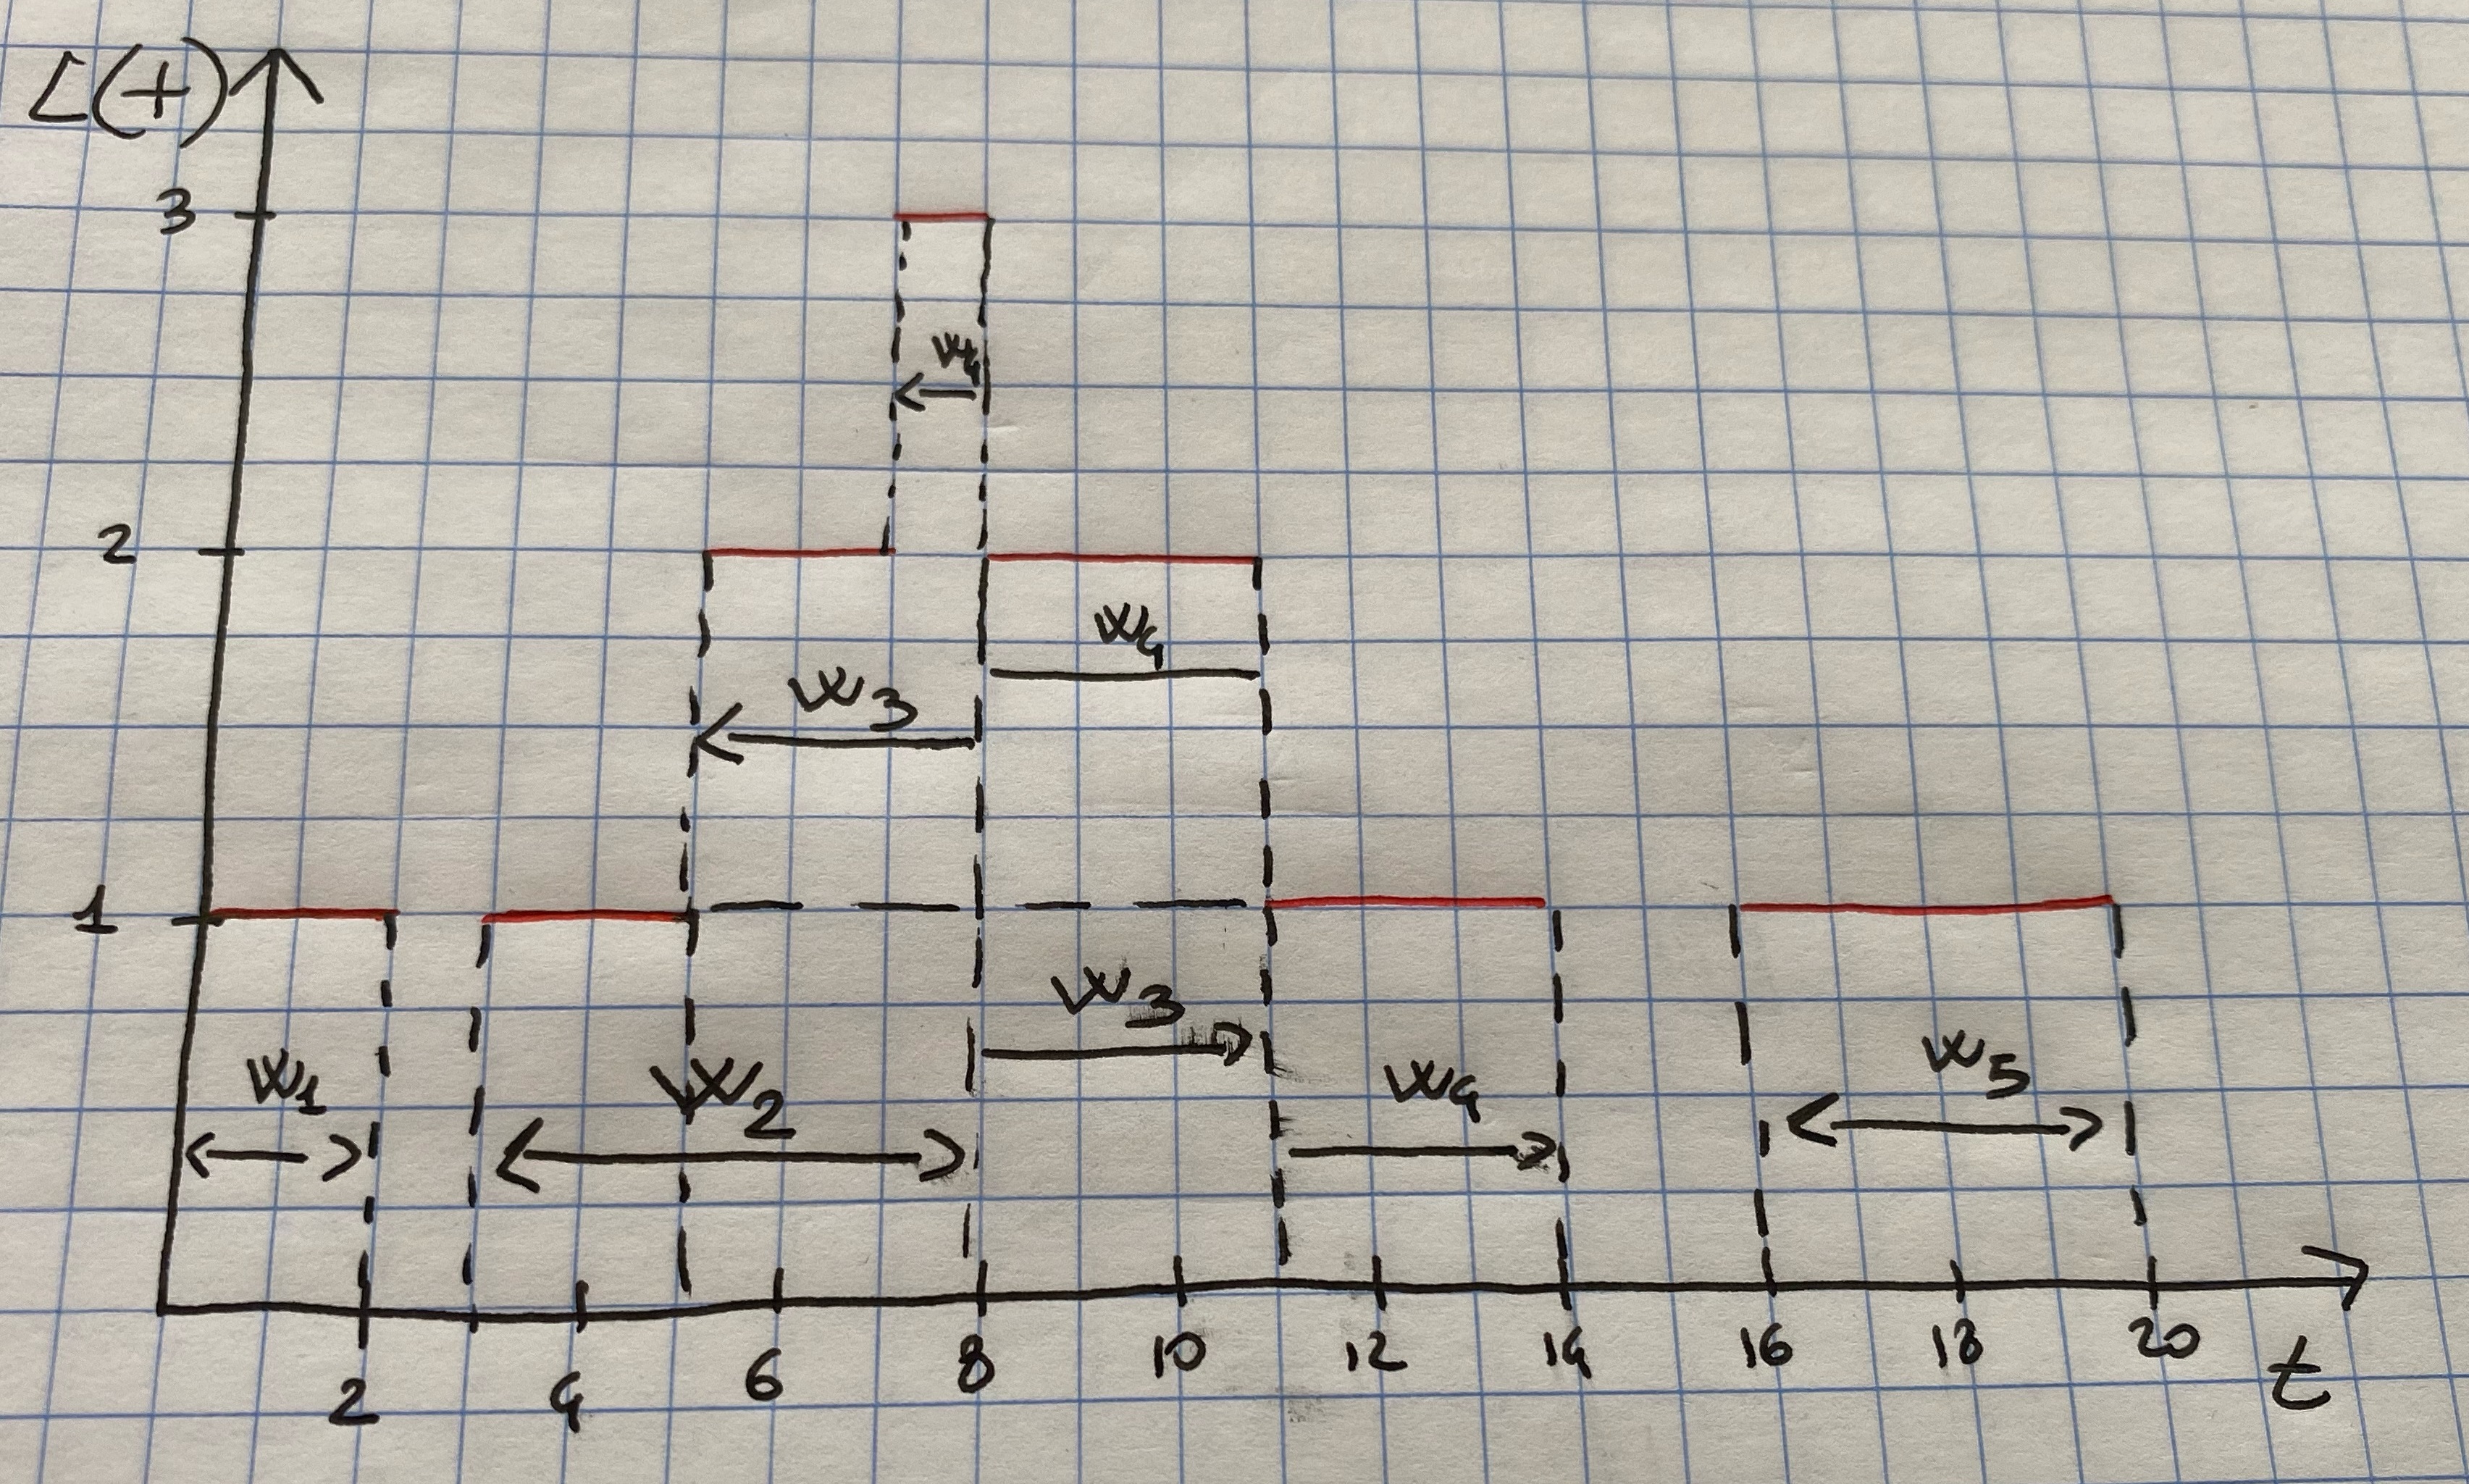 L(t)
3
W4
2
W4
W3
1
W3
W1
W2
W4
W5
2
4
6
8
10
12
14
16
18
20
t